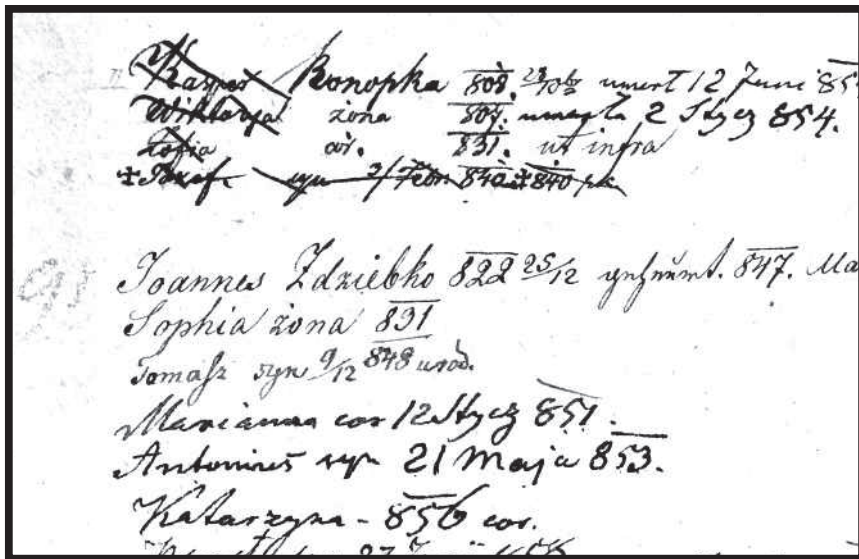 Kasper Konopka 808. umarł 12 Juni 85
Wiktorya żona 807. umarła 2 Stycz 854.
Zofia cór. 831. ut infra
‡ Józef. syn 2/7br. 840 ‡ 840
Joannes Zdziebko 822 25/12 847. Ma
Sophia żona 831
Tomasz syn 9/12 848 urod.
Marianna cor 12 Stycz 851.
Antonius syn 21 Maja 853.
Katarzyna - 856 cor.